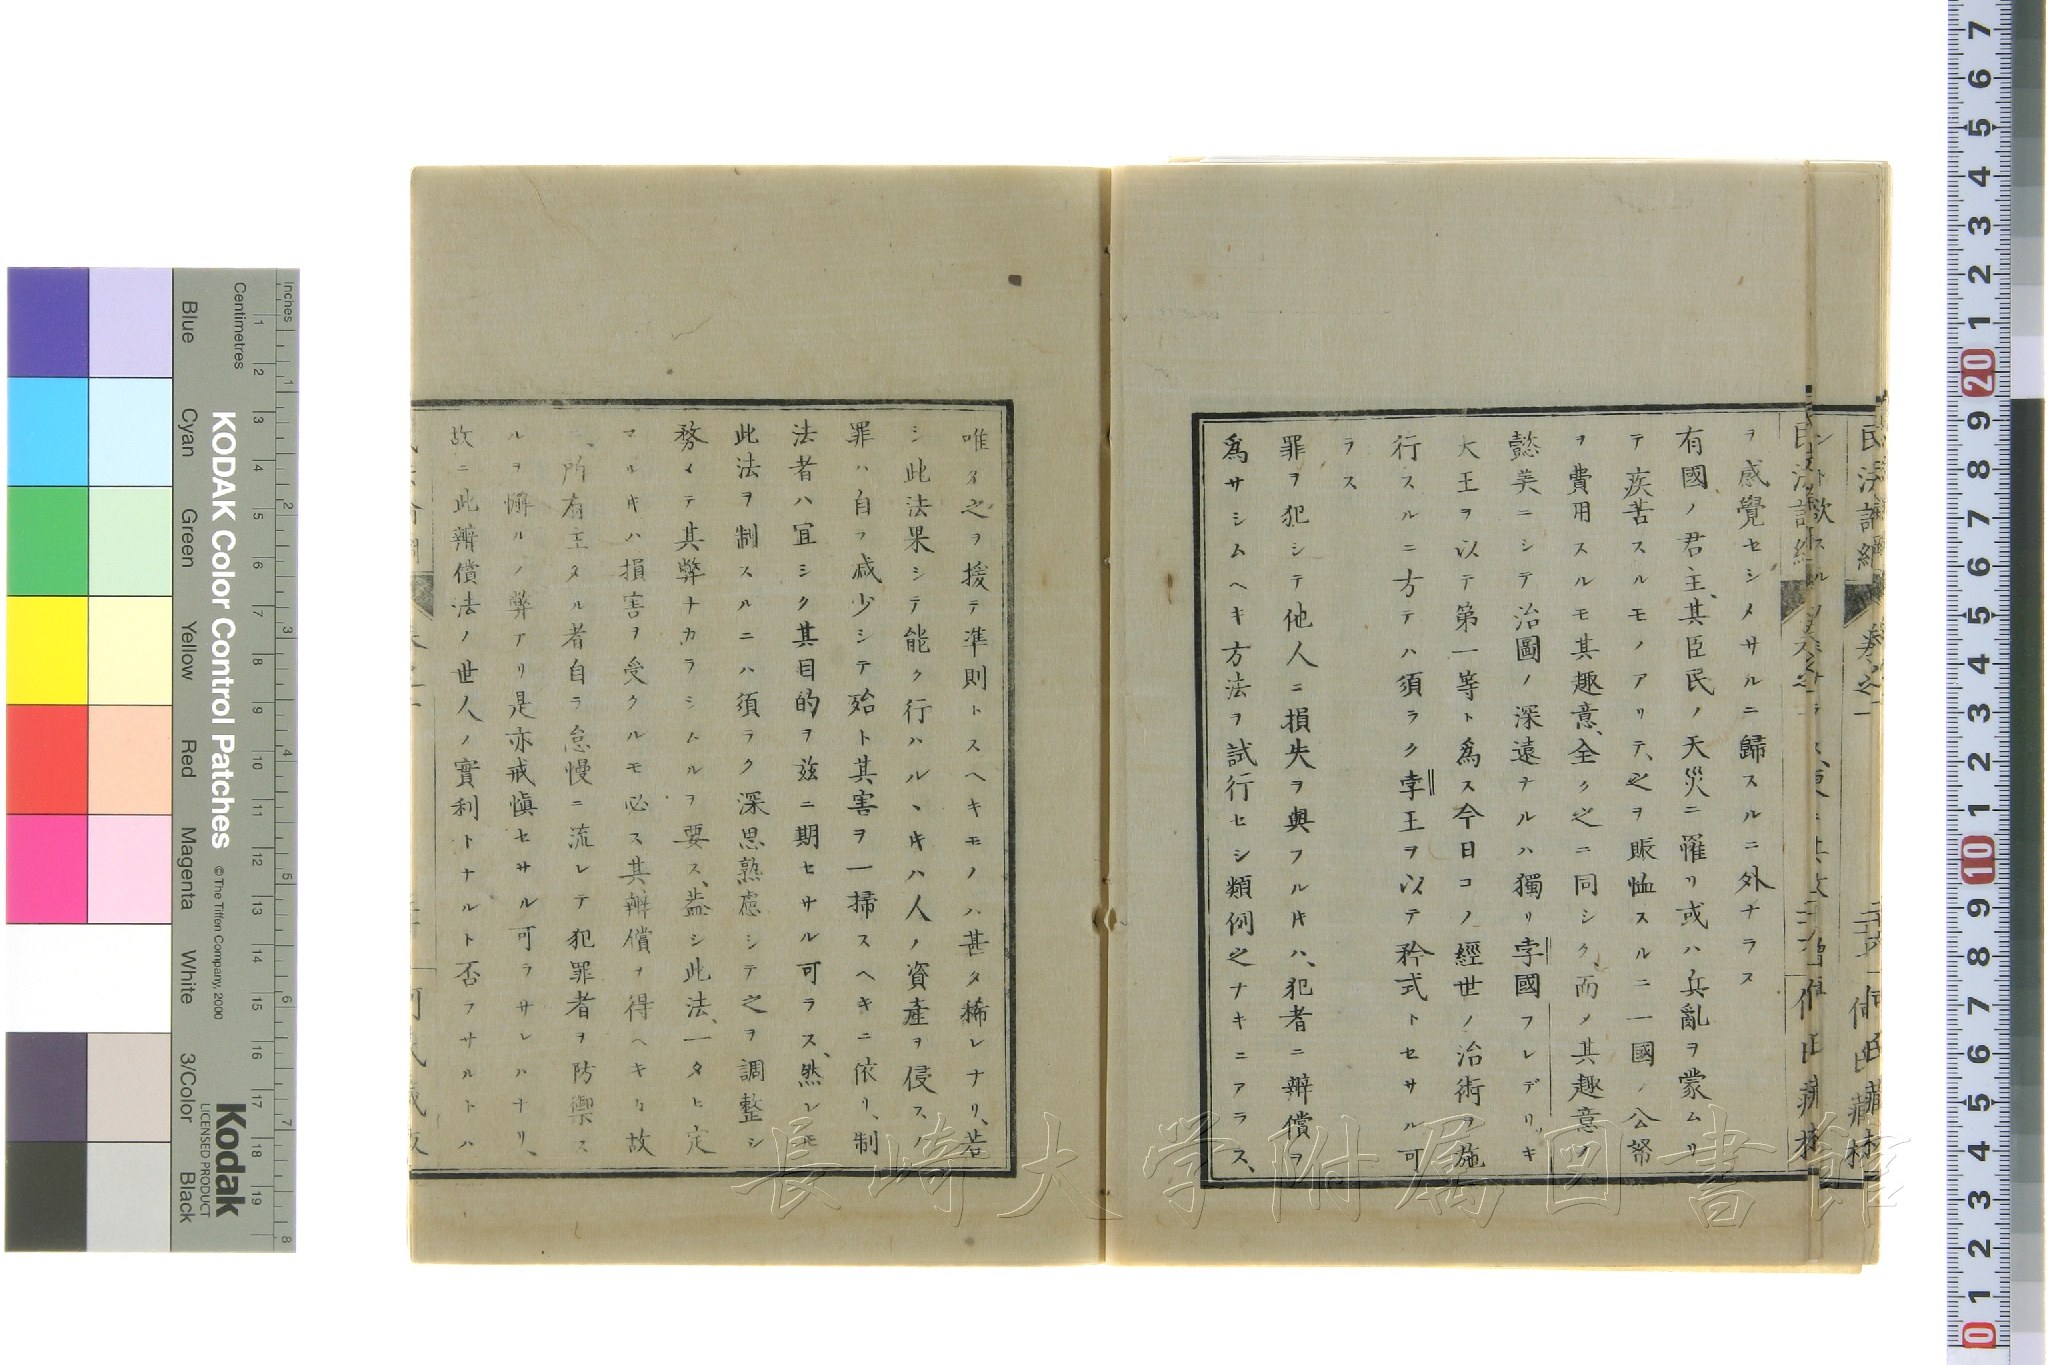 ヲ感覺セシメサルニ歸スルニ外ナラス
有國ノ君主、其臣民ノ天災ニ罹リ或ハ兵亂ヲ蒙ムリ
テ疾苦スルモノアリテ、之ヲ賑恤スルニ一國ノ公帑
ヲ費用スルモ其趣意、全ク之ニ同シク、而〆其趣意ノ
懿美ニシテ治圖ノ深遠ナルハ獨リ孛國フレデリッキ
大王ヲ以テ第一等ト爲ス今日コノ經世ノ治術ヲ施
行スルニ方テハ須ラク孛王ヲ以テ矜式トセサル可
ラス
罪ヲ犯シテ他人ニ損失ヲ與フルキハ、犯者ニ辨償ヲ
爲サシムヘキ方法ヲ試行セシ類例之ナキニアラス、
唯之ヲ援テ準則トスヘキモノハ甚タ稀レナリ、若
シ此法果シテ能ク行ハルヽキハ人ノ資產ヲ侵スノ
罪ハ自ラ減少シテ殆ト其害ヲ一掃スヘキニ依リ、制
法者ハ宜シク其目的ヲ玆ニ期セサル可ラス、然レモ
此法ヲ制スルニハ須ラク深思熟慮シテ之ヲ調整シ
務メテ其弊ナカラシムルヲ要ス、蓋シ此法、一タヒ定
マルキハ損害ヲ受クルモ必ス其辨償ヲ得ヘキカ故
ニ、所有主タル者自ラ怠慢ニ流レテ犯罪者ヲ防禦ス
ルヲ懈ルノ弊アリ是亦戒愼セサル可ラサレハナリ、
故ニ此辨償法ノ世人ノ實利トナルト否ラサルトハ
民法論綱 卷之一
二十六 何氏藏梓
KODAK Color Control Patches
© The Tiffen Company, 2000
Kodak
LICENSED PRODUCT
Inches
Centimetres
Blue
Cyan
Green
Yellow
Red
Magenta
White
3/Color
Black
長崎大学附属図書館